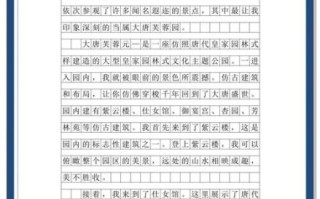 依次参观了许多闻名遐迩的景点,其中最让我
印象深刻的当属大唐芙蓉园。
大唐芙蓉元一是一座仿照唐代皇家园林式
样建造的大型皇家园林式文化主题公园。一进
入园内,我就被眼前的景色所震撼。仿古建筑
和布局,让你仿佛穿梭千年回到了大唐盛世。
园内建有紫云楼、仕女馆、御宴宫、杏园、芳
林苑等仿古建筑。我首先来到了紫云楼,这是
园内的标志性建筑之一。登上紫云楼,我可以
俯瞰整个园区的美景,远处的山水相映成趣,
美不胜收。
接着,我来到了仕女馆。这里展示了唐代